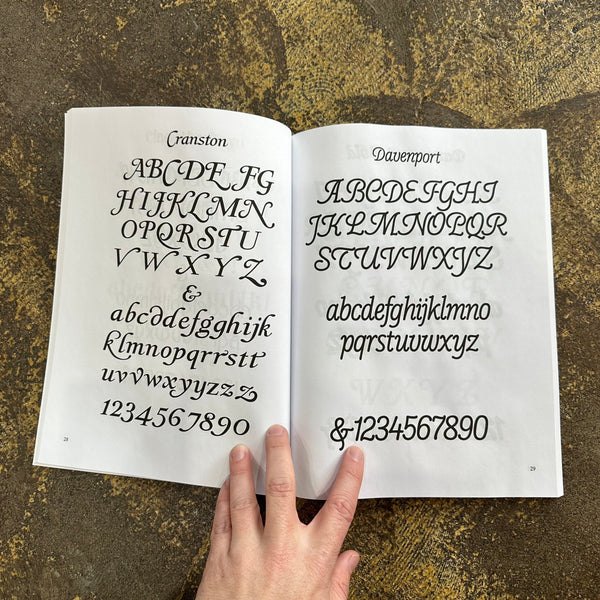 Cranston
ABCDE FG
HIJKLMN
OPQRSTU
VWXYZ
&
abcddefgghijk
klmnopqrrstt
uvvwxyyzzz
1234567890
28
Davenport
ABCDEFGHI
JKLMNOPQR
STUVWXYZ
abcdefghijklmno
pqrstuvwxyz
&1234567890
29